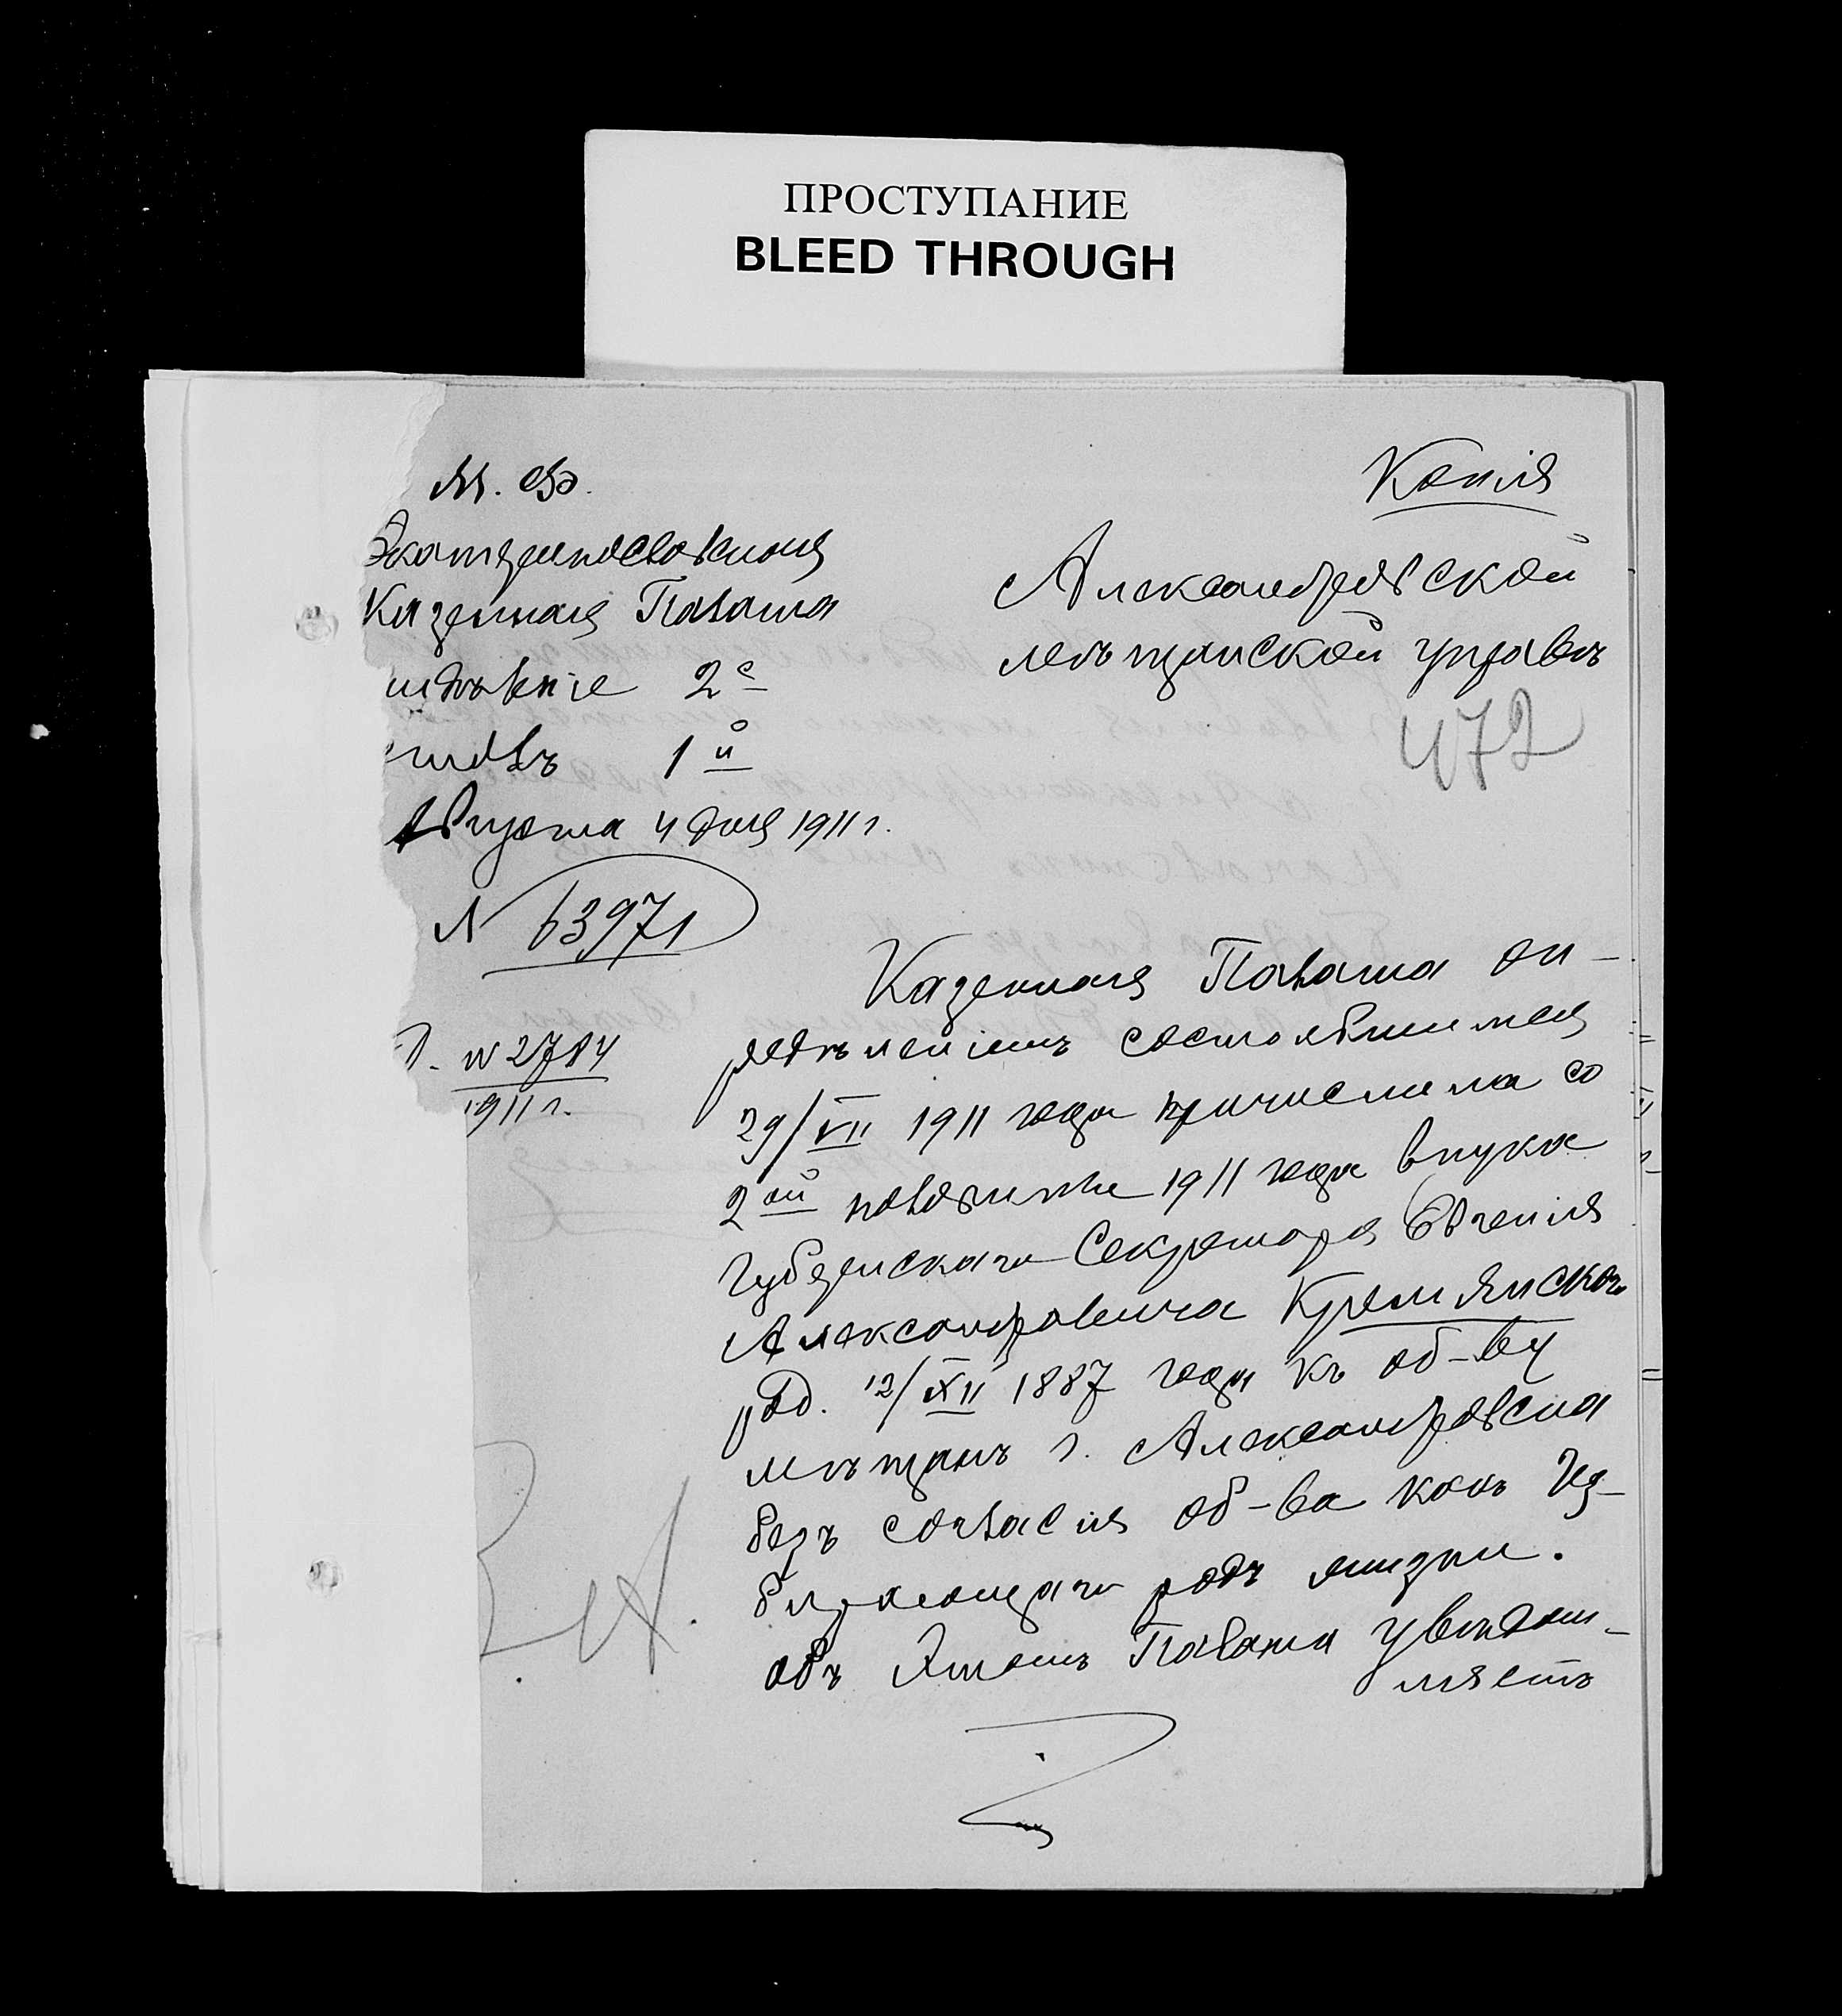 ПРОСТУПАНИЕ
BLEED THROUGH
Копія
М. Ф.
Екатеринославская
Казенная Палата
Отдѣленіе 2е
Столъ 1й
Августа 4 дня 1911 г.
№ 63971
Д. № 2784
1911 г.
Александровской
мѣщанской управѣ
472
Казенная Палата оп-
редѣленіемъ состоявшимся
29/VII 1911 года причислила со
2ой половины 1911 года внука
Губернскаго Секретаря Евгенія
Александровича Кремянскаго
род. 12/XII 1887 года къ об-ву
мѣщанъ г. Александровска
безъ согласія об-ва какъ из-
бирающаго родъ жизни.
объ этомъ Палата увѣдом-
ляетъ